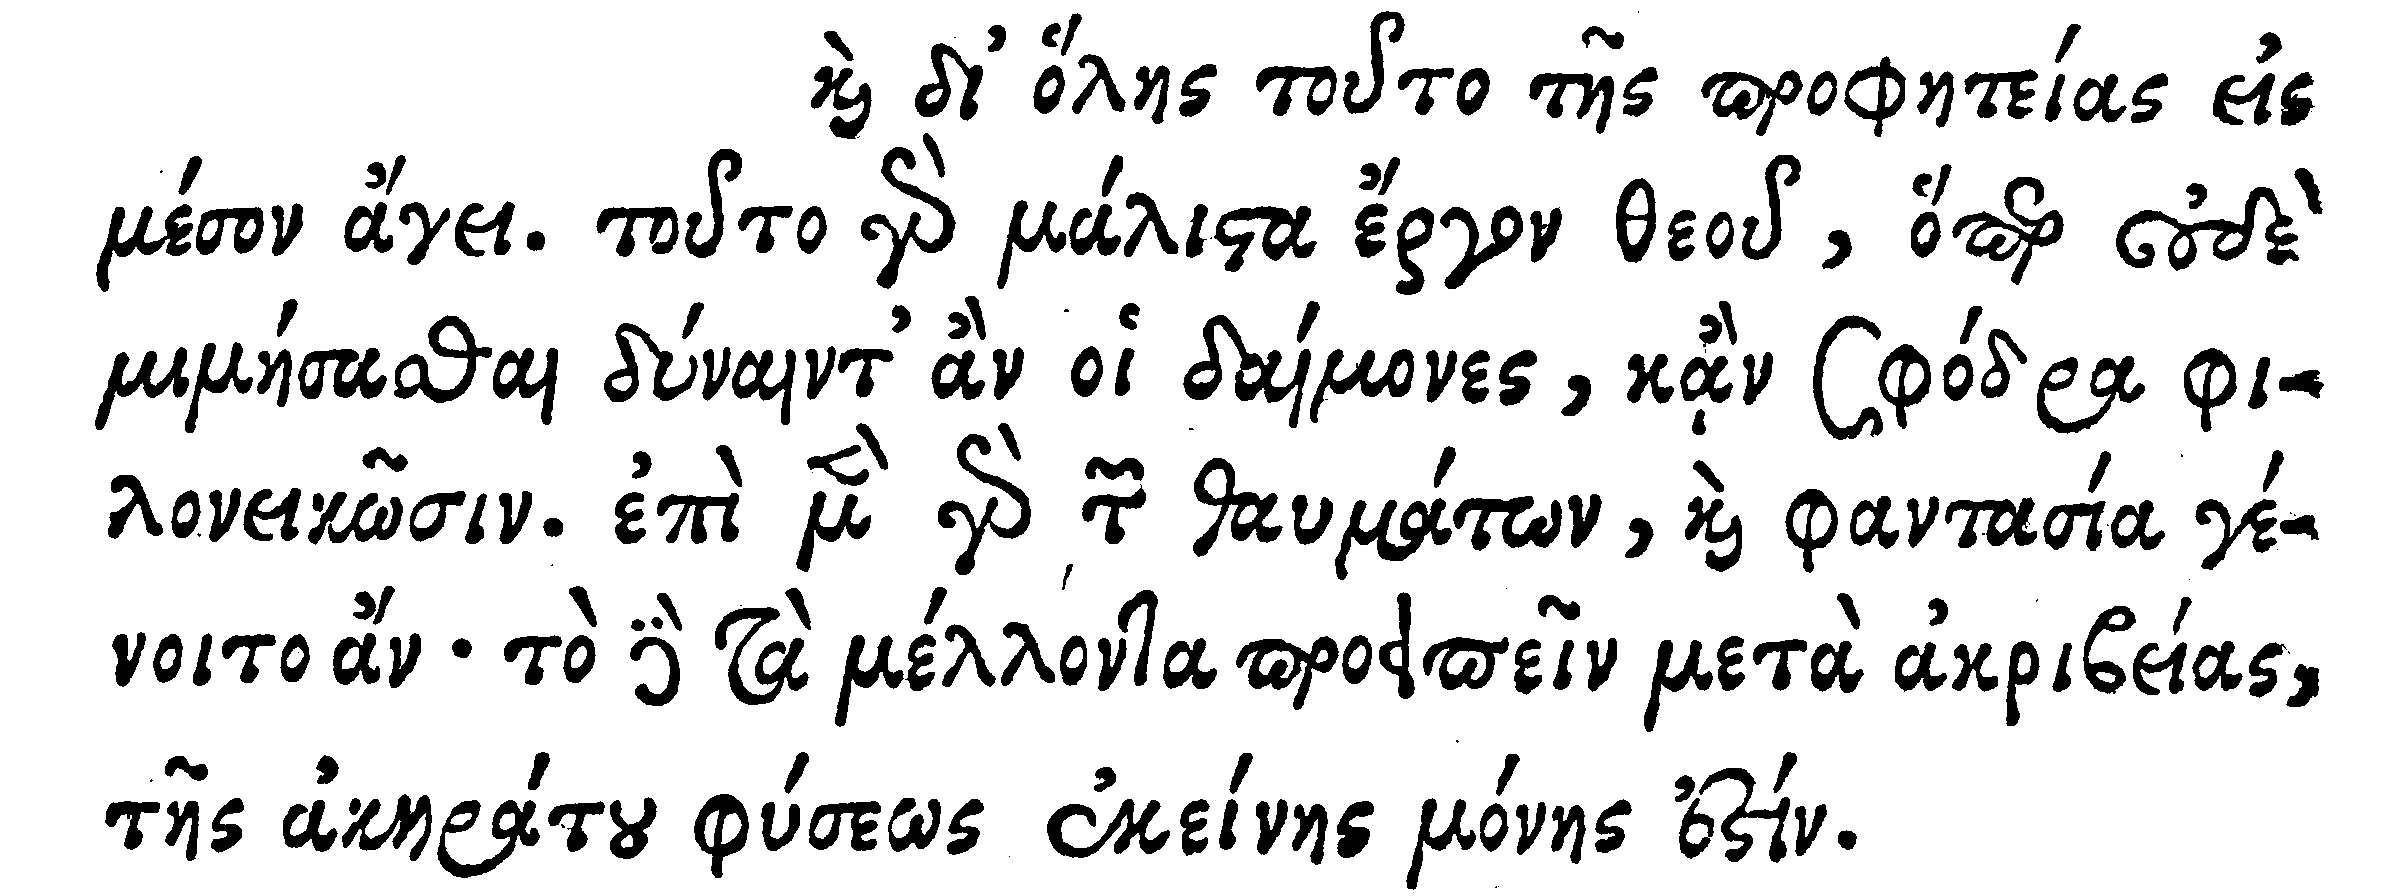 καὶ δι' ὅλης τοῦτο τῆς προφητείας εἰς
μέσον ἄγει. τοῦτο γὰρ μάλιστα ἔργον θεοῦ, ὅπερ οὐδὲ
μιμήσασθαι δύναιντ' ἂν οἱ δαίμονες, κἂν σφόδρα φι-
λονεικῶσιν. ἐπὶ μὲν γὰρ τῶν θαυμάτων, καὶ φαντασία γέ-
νοιτο ἄν· τὸ δὲ τὰ μέλλοντα προειπεῖν μετὰ ἀκριβείας,
τῆς ἀκηράτου φύσεως ἐκείνης μόνης ἐστίν.